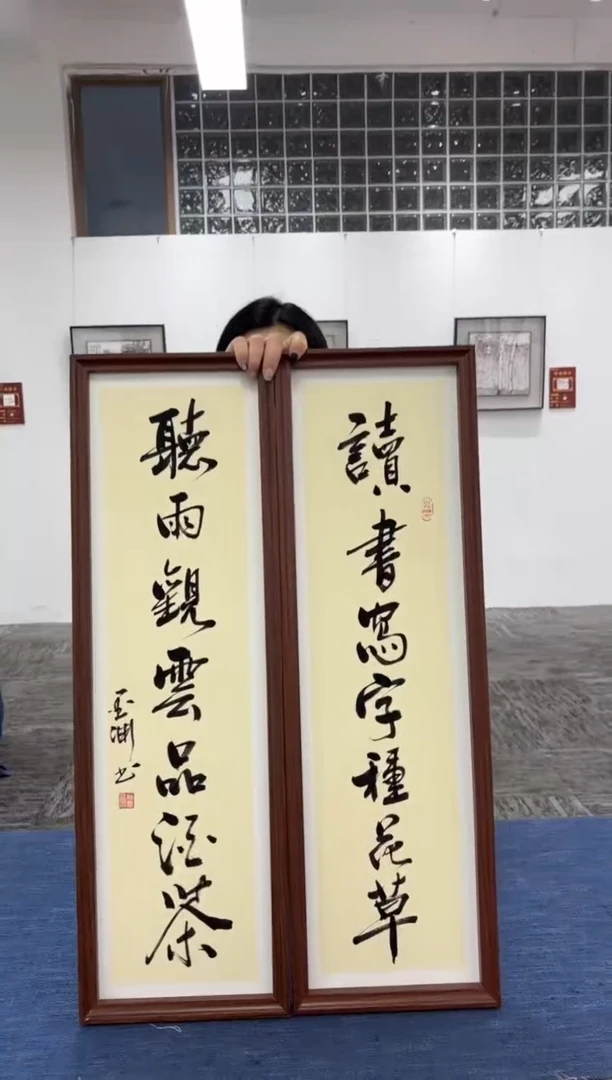 讀書寫字種花草
聽雨觀雲品酒茶
玉淵书